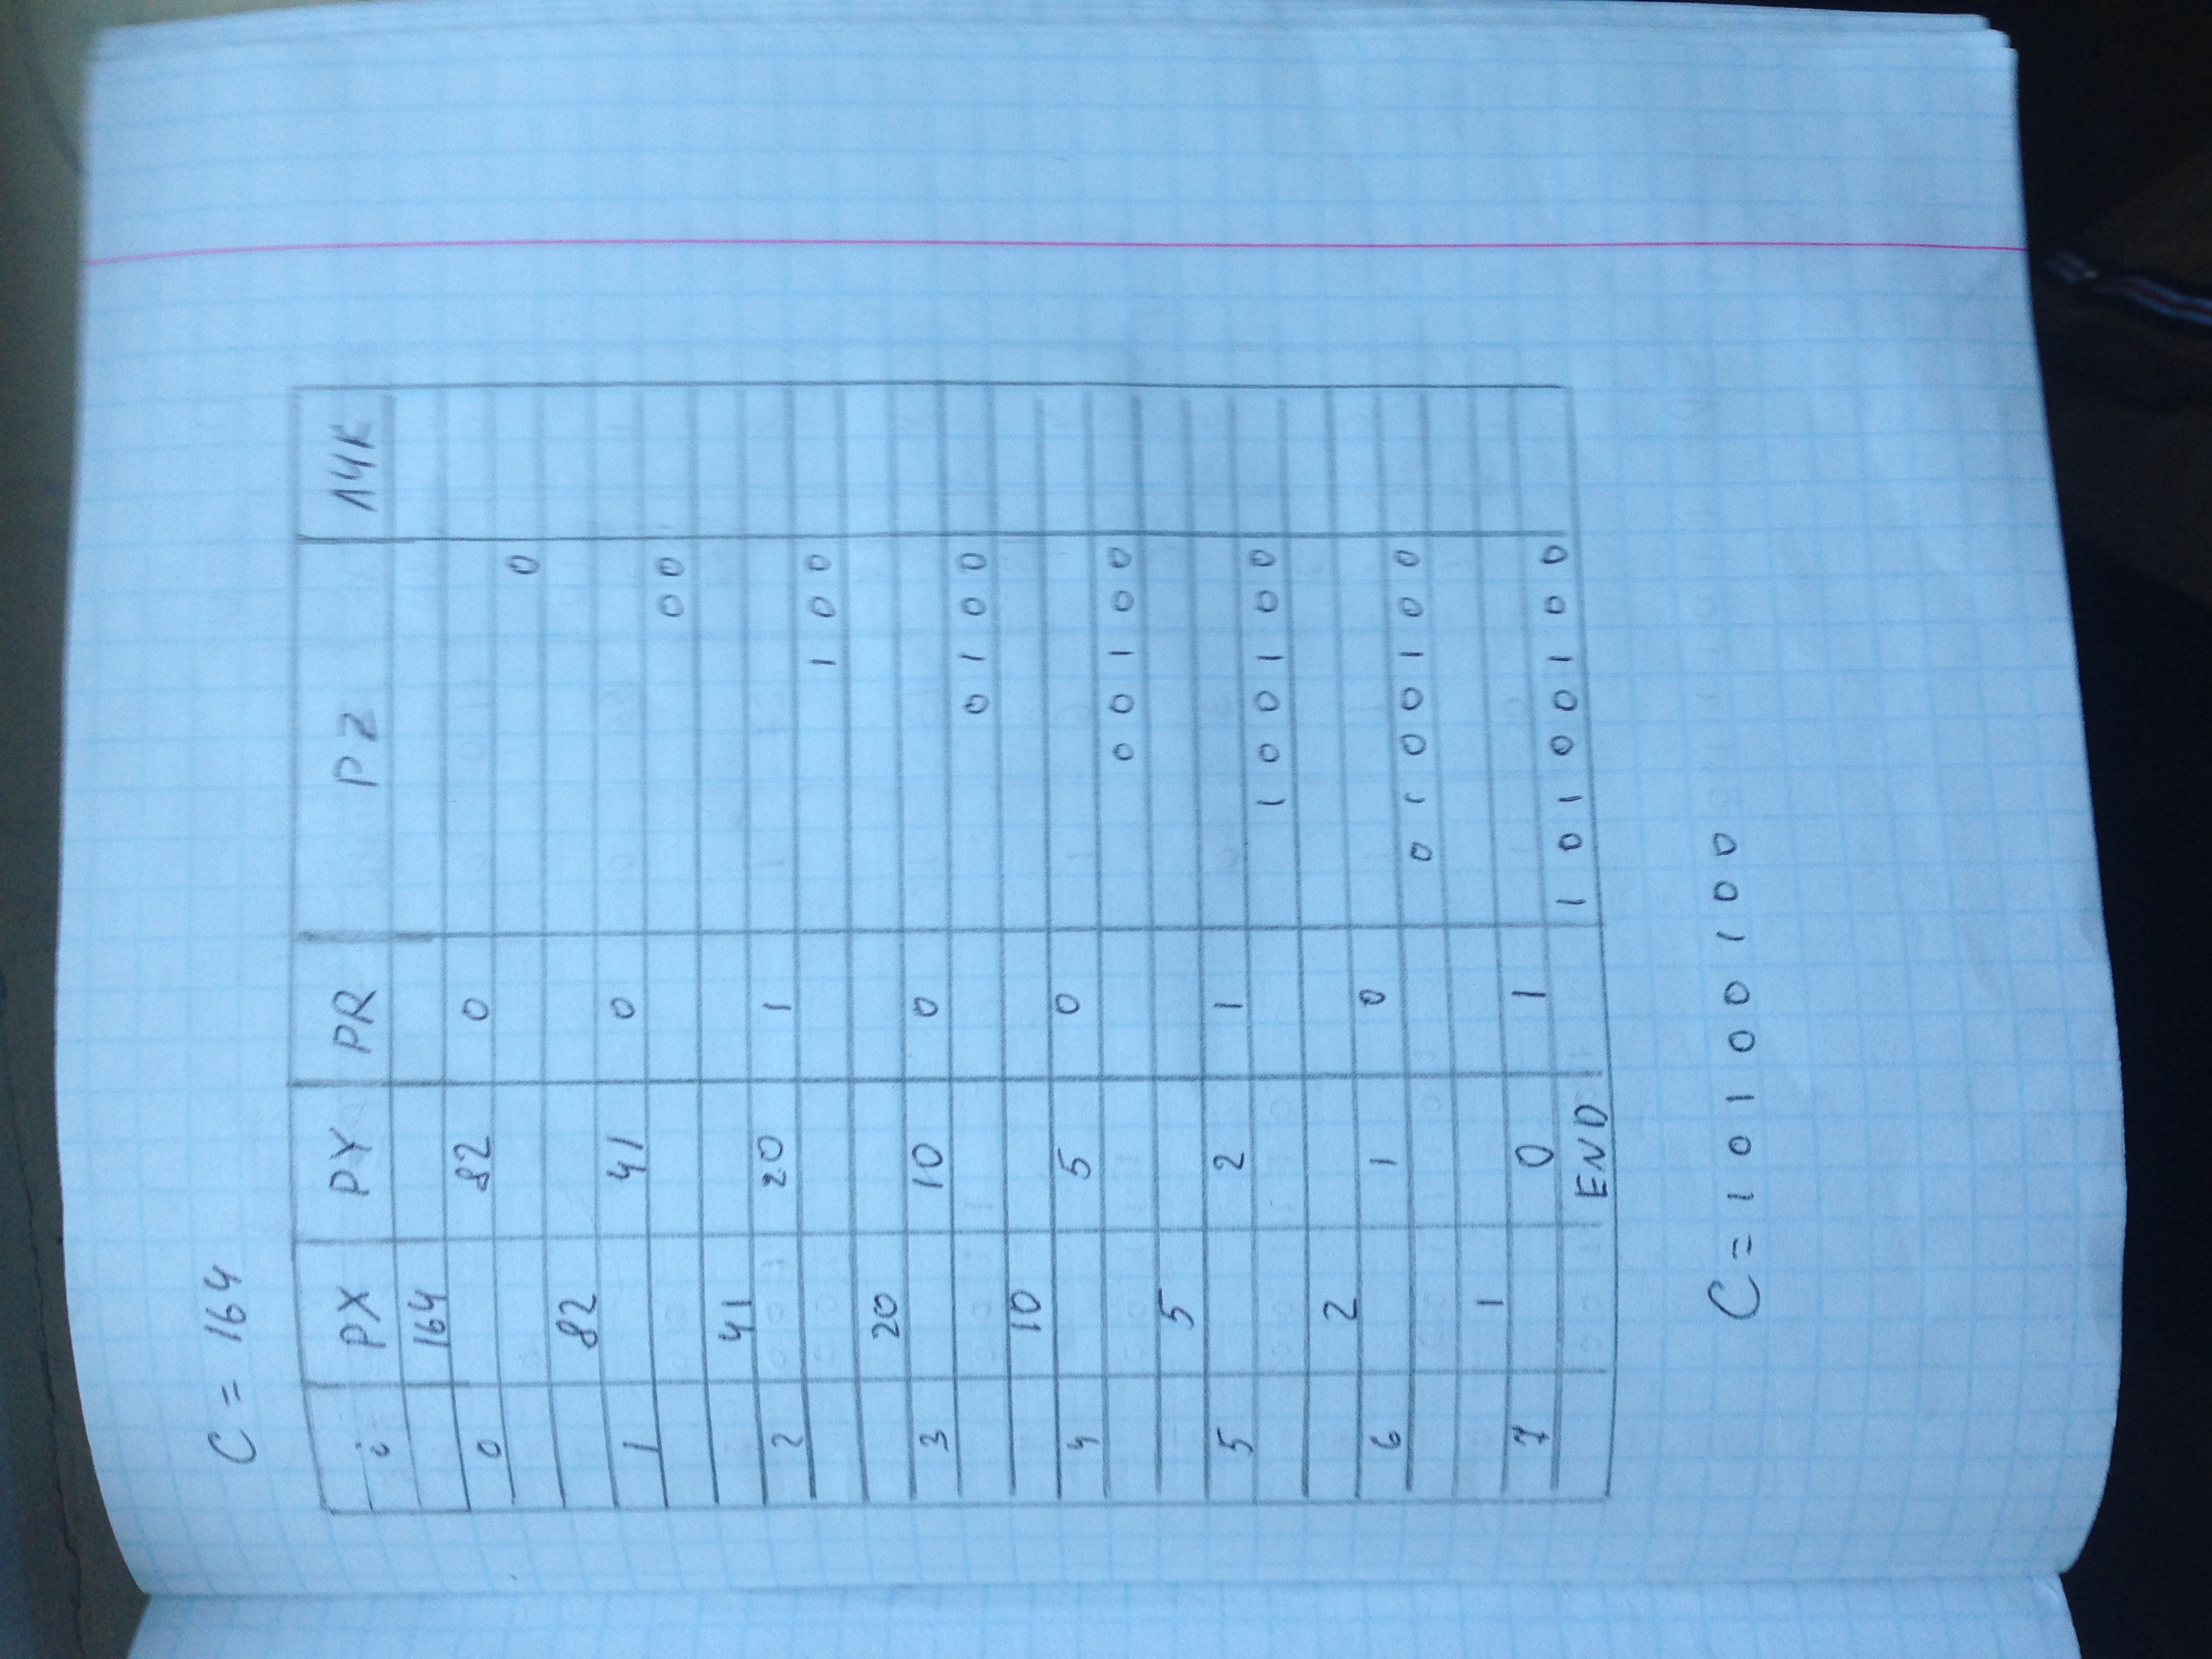 C = 164
i PX PY PR PZ ЛЧК
164
0 82 0
0
82
1 41 0
0 0
41
2 20 1
1 0 0
20
3 10 0
0 1 0 0
10
4 5 0
0 0 1 0 0
5
5 2 1
1 0 0 1 0 0
2
6 1 0
0 1 0 0 1 0 0
1
7 0 1
END 1 0 1 0 0 1 0 0
C = 1 0 1 0 0 1 0 0